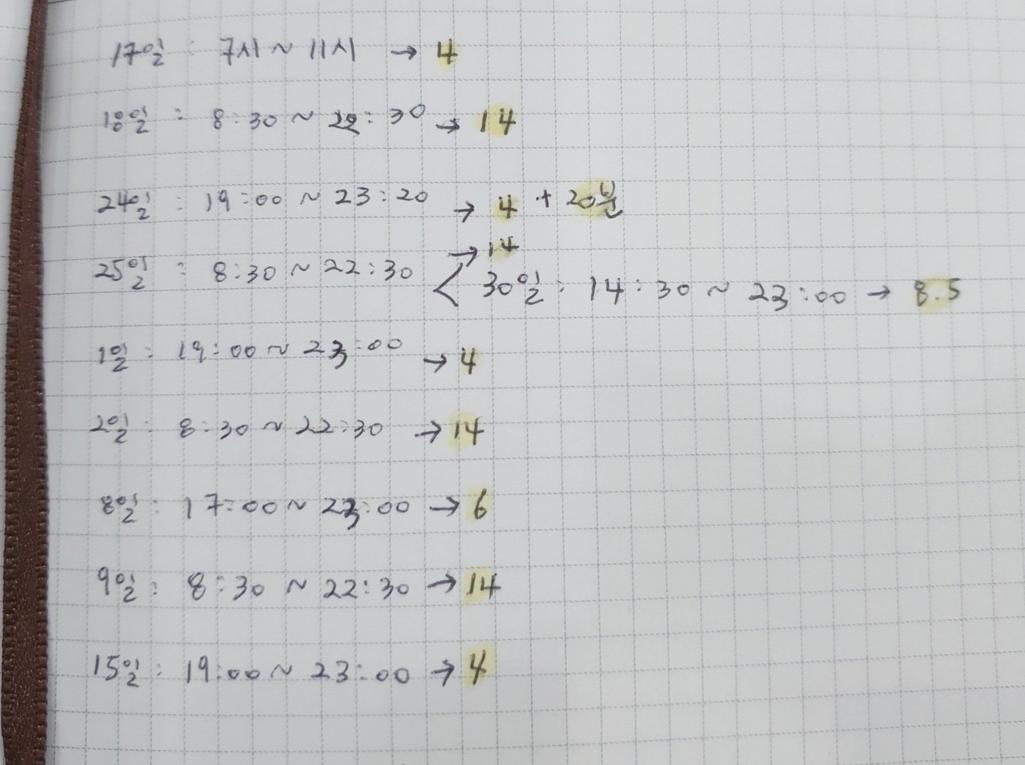 17일 : 7시 ~ 11시 → 4
18일 : 8:30 ~ 22:30 → 14
24일 : 19:00 ~ 23:20 → 4 + 20분
25일 : 8:30 ~ 22:30 → 14
< 30일 : 14:30 ~ 23:00 → 8.5
1일 : 19:00 ~ 23:00 → 4
2일 : 8:30 ~ 22:30 → 14
8일 : 17:00 ~ 23:00 → 6
9일 : 8:30 ~ 22:30 → 14
15일 : 19:00 ~ 23:00 → 4